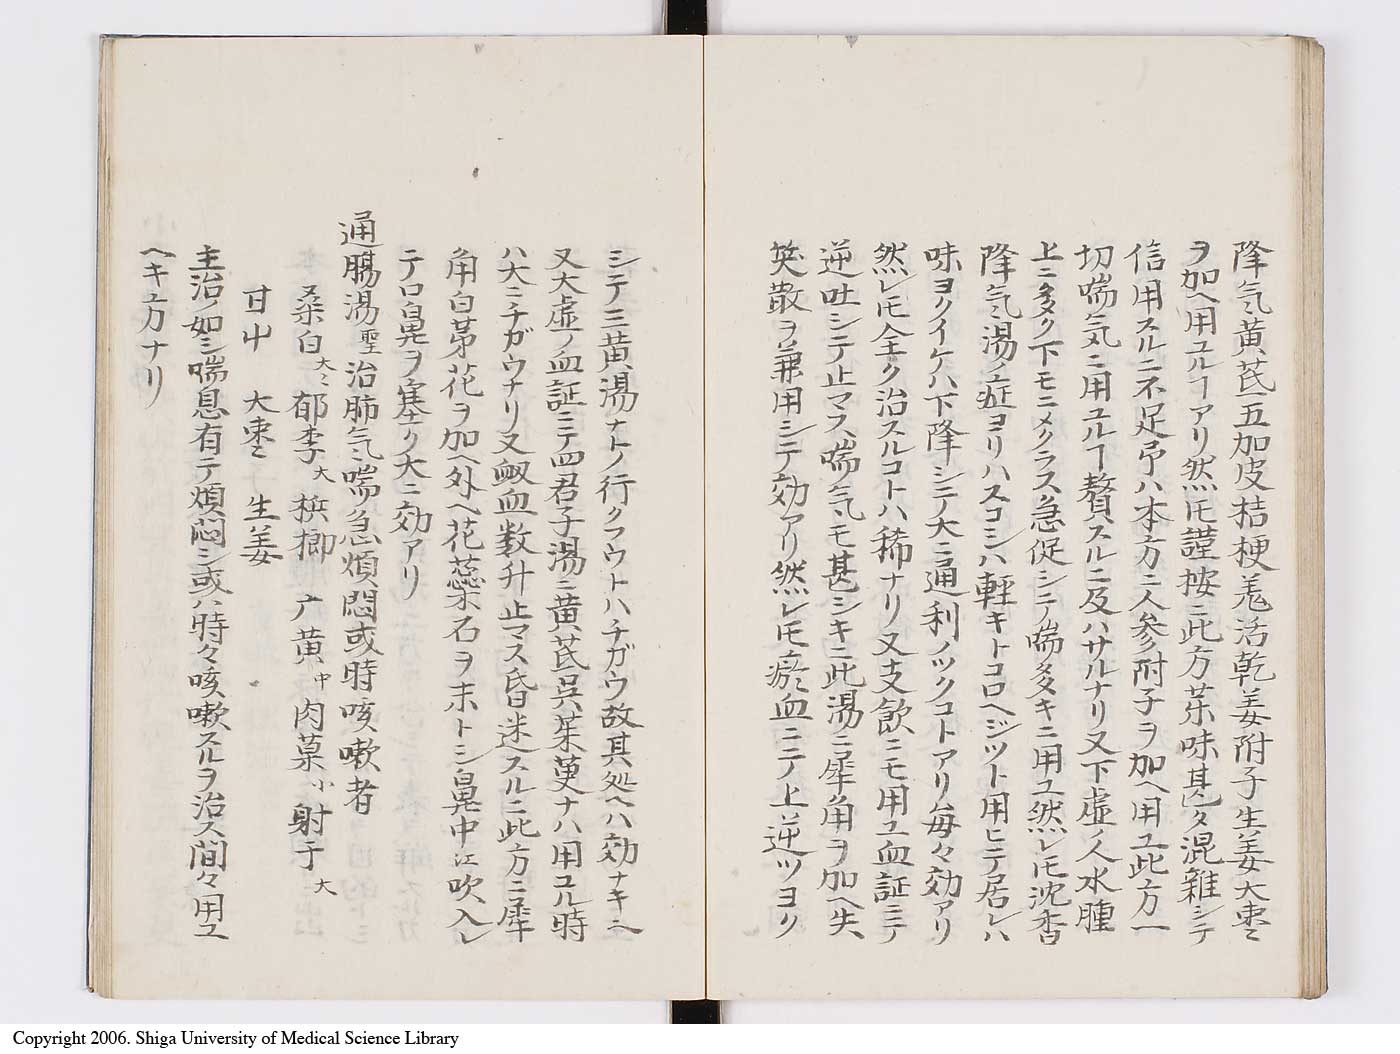 降气黄芪五加皮桔梗羗活乾姜附子生姜大枣
ヲ加ヘ用ユルヿアリ然ㇳモ謹按ニ此方茱味甚タ混雜シテ
信用スルニ不足予ハ本方ニ人参附子ヲ加ヘ用ユ此方一
切喘气ニ用ユルヿ贅スルニ及ハサルナリ又下虚ノ人水腫
上ニ多ク下モニメクラス急促シテ喘多キニ用ユ然レㇳモ沈香
降气湯ノ症ヨリハスコシハ軽キトコロヘジツト用ヒテ居レハ
味ヨクイケハ下降シテ大ニ通利ノツクコトアリ毎々効アリ
然レㇳモ全ク治スルコトハ稀ナリ又支飲ニモ用ユ血証ニテ
逆吐シテ止マス喘气モ甚シキニ此湯ニ犀角ヲ加ヘ失
笑散ヲ兼用シテ効アリ然レㇳモ瘀血ニテ上逆ツヨク
シテ三黄湯ナトノ行クフウトハチガウ故其処ヘハ効ナキニヘ
又大虚ノ血証ニテ四君子湯ニ黄芪呉茱萸ナハ用ユル時
ハ大ニチガウナリ又衂血数升止マス昏迷スルニ此方ニ犀
角白茅花ヲ加ヘ外ヘ花蕊石ヲ末トシ鼻中江吹入レ
テロ鼻ヲ塞ク大ニ効アリ
通腸湯聖治肺气喘急煩悶或時咳嗽者
桑白大ニ 郁李大 梹榔 广黄中 肉菓小 射干大
甘屮 大枣 生姜
主治ノ如シ喘息有テ煩悶シ或ハ時々咳嗽スルヲ治ス間々用ユ
ヘキ方ナリ
Copyright 2006. Shiga University of Medical Science Library